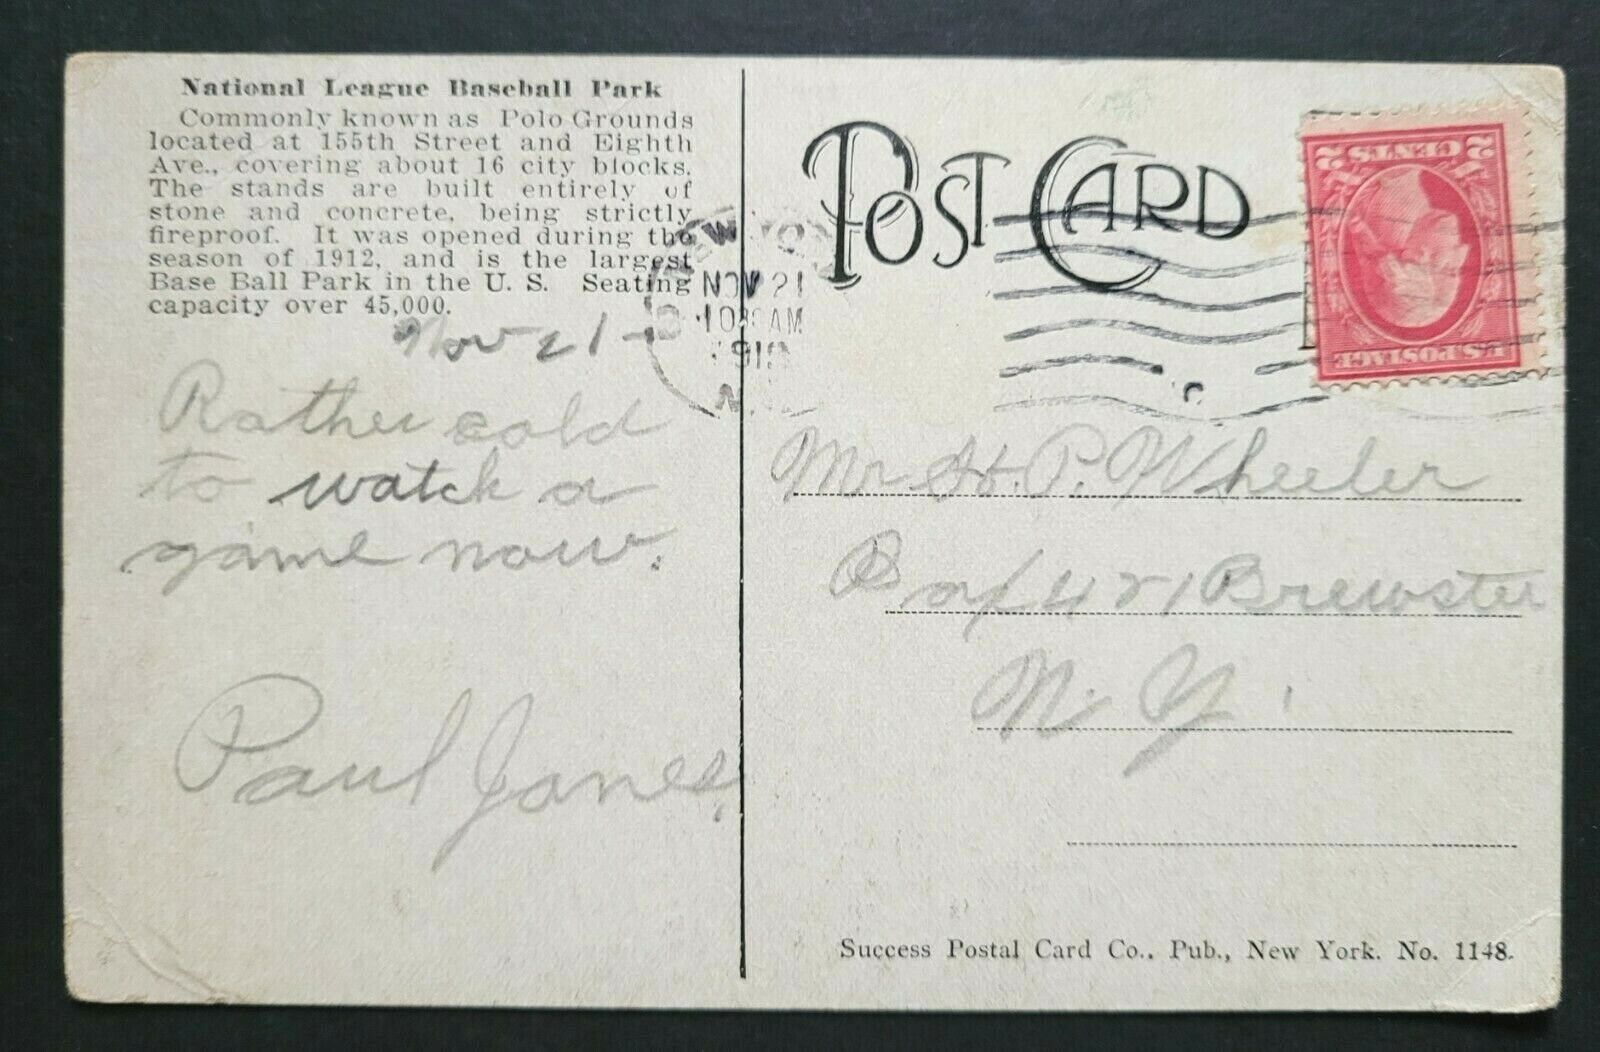 National League Baseball Park
Commonly known as Polo Grounds
located at 155th Street and Eighth
Ave., covering about 16 city blocks.
The stands are built entirely of
stone and concrete, being strictly
fireproof. It was opened during the
season of 1912, and is the largest
Base Ball Park in the U. S. Seating
capacity over 45,000.
Nov 21 -
Rather cold
to watch a
game now.
Paul Jones.
POST CARD
NEW YO
NOV 21
10 AM
191
N.
2 CENTS 2
U.S. POSTAGE
Mr H. P. Wheeler
Box 421 Brewster
N. Y.
Success Postal Card Co., Pub., New York. No. 1148.